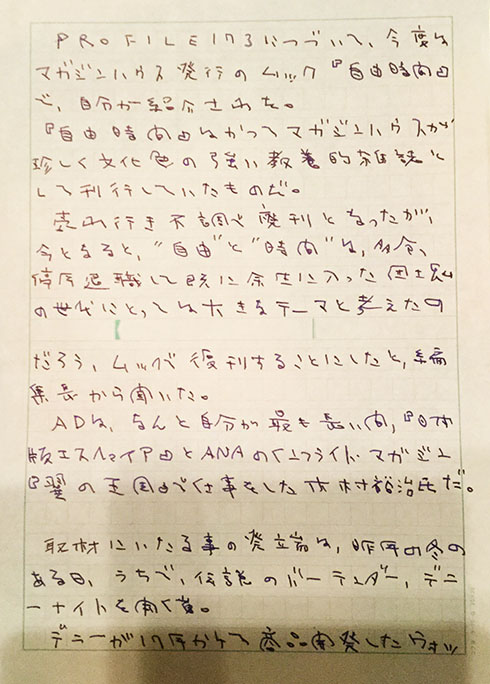 PROFILE173につづいて、今度は
マガジンハウス発行のムック『自由時間』
で、自分が紹介された。
『自由時間』はかつてマガジンハウスが
珍しく文化色の強い教養的雑誌と
して刊行していたものだ。
売れ行き不調で廃刊となったが、
今となると、"自由"と"時間"は、多分、
停年退職して既に余生に入った団塊
の世代にとっては大きなテーマと考えたの
だろう、ムックで復刊することにしたと、編
集長から聞いた。
ADは、なんと自分が最も長い間、『日本
版エスクァイア』とANAのインフライトマガジン
『翼の王国』で仕事をした木村裕治氏だ。
取材にいたる事の発端は、昨年の冬の
ある日、うちで、伝説のバーテンダー、デニ
ーナイトを開く宴。
デニーが17年かけて商品開発したウォッ